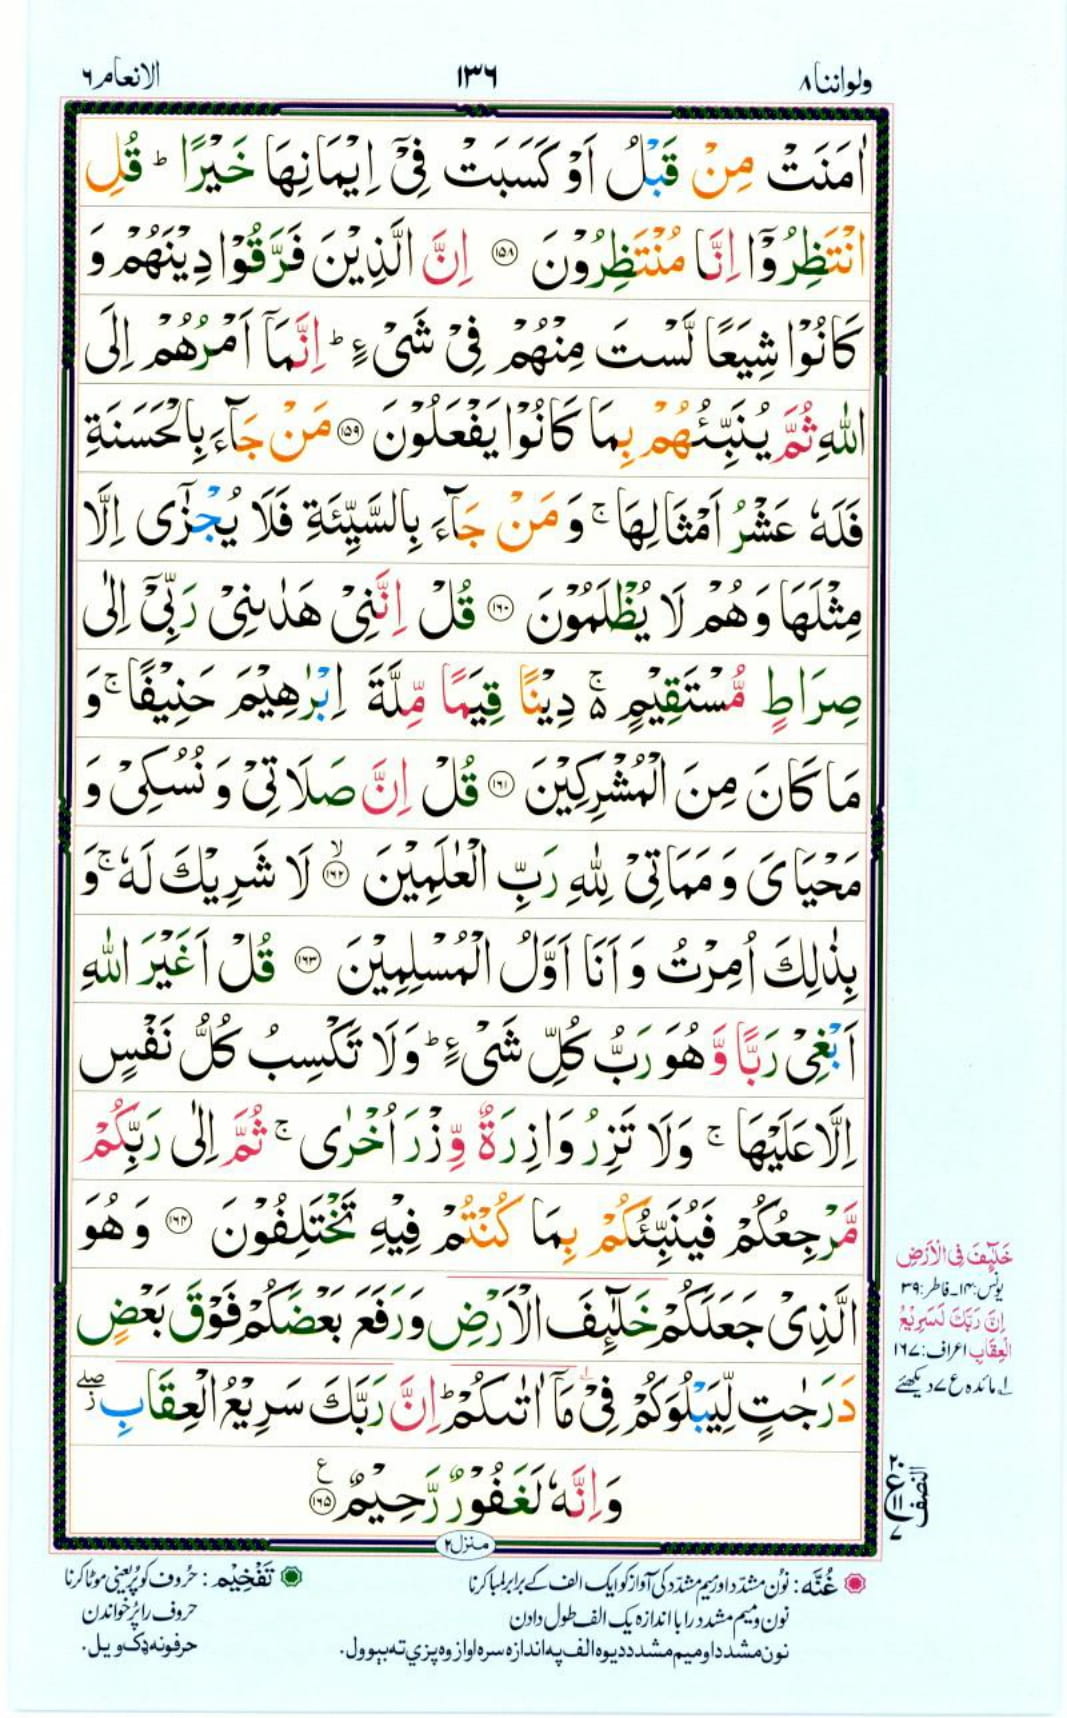 ولواننا ۸
۱۳۶
الانعام ۶
اٰمَنَتْ مِنْ قَبْلُ اَوْ كَسَبَتْ فِیْۤ اِیْمَانِهَا خَیْرًا ؕ قُلِ
انْتَظِرُوْۤا اِنَّا مُنْتَظِرُوْنَ ۝۱۵۸ اِنَّ الَّذِیْنَ فَرَّقُوْا دِیْنَهُمْ وَ
كَانُوْا شِیَعًا لَّسْتَ مِنْهُمْ فِیْ شَیْءٍ ؕ اِنَّمَاۤ اَمْرُهُمْ اِلَی
اللّٰهِ ثُمَّ یُنَبِّئُهُمْ بِمَا كَانُوْا یَفْعَلُوْنَ ۝۱۵۹ مَنْ جَآءَ بِالْحَسَنَةِ
فَلَهٗ عَشْرُ اَمْثَالِهَا ۚ وَ مَنْ جَآءَ بِالسَّیِّئَةِ فَلَا یُجْزٰۤی اِلَّا
مِثْلَهَا وَ هُمْ لَا یُظْلَمُوْنَ ۝۱۶۰ قُلْ اِنَّنِیْ هَدٰىنِیْ رَبِّیْۤ اِلٰی
صِرَاطٍ مُّسْتَقِیْمٍ ۵ۚ دِیْنًا قِیَمًا مِّلَّةَ اِبْرٰهِیْمَ حَنِیْفًا ۚ وَ
مَا كَانَ مِنَ الْمُشْرِكِیْنَ ۝۱۶۱ قُلْ اِنَّ صَلَاتِیْ وَ نُسُكِیْ وَ
مَحْیَایَ وَ مَمَاتِیْ لِلّٰهِ رَبِّ الْعٰلَمِیْنَ ۝۱۶۲ۙ لَا شَرِیْكَ لَهٗ ۚ وَ
بِذٰلِكَ اُمِرْتُ وَ اَنَا اَوَّلُ الْمُسْلِمِیْنَ ۝۱۶۳ قُلْ اَغَیْرَ اللّٰهِ
اَبْغِیْ رَبًّا وَّ هُوَ رَبُّ كُلِّ شَیْءٍ ؕ وَ لَا تَكْسِبُ كُلُّ نَفْسٍ
اِلَّا عَلَیْهَا ۚ وَ لَا تَزِرُ وَازِرَةٌ وِّزْرَ اُخْرٰی ۚ ثُمَّ اِلٰی رَبِّكُمْ
مَّرْجِعُكُمْ فَیُنَبِّئُكُمْ بِمَا كُنْتُمْ فِیْهِ تَخْتَلِفُوْنَ ۝۱۶۴ وَ هُوَ
الَّذِیْ جَعَلَكُمْ خَلٰٓئِفَ الْاَرْضِ وَ رَفَعَ بَعْضَكُمْ فَوْقَ بَعْضٍ
دَرَجٰتٍ لِّیَبْلُوَكُمْ فِیْ مَاۤ اٰتٰىكُمْ ؕ اِنَّ رَبَّكَ سَرِیْعُ الْعِقَابِ ۖز
وَ اِنَّهٗ لَغَفُوْرٌ رَّحِیْمٌ ۝۱۶۵ ع
خَلٰٓئِفَ فِی الْاَرْضِ
یونس:۱۴۔فاطر:۳۹
اِنَّ رَبَّكَ لَسَرِیْعُ
الْعِقَابِ اعراف:۱۶۷
لے مائدہ ع ۷ دیکھئے
۲۰
ع
۱۱
۷
النصف
منزل ۲
غُنَّه : نُون مشدّد اور میم مشدّد کی آواز کو ایک الف کے برابر لمبا کرنا
نون و میم مشدد را با اندازه یک الف طول دادن
نون مشدد او میم مشدد دیوه الف په اندازه سره اواز وه پزي ته بیوول.
تَفْخِیْم : حُروف کو پُر یعنی موٹا کرنا
حروف را پُر خواندن
حرفونه ډک ویل.